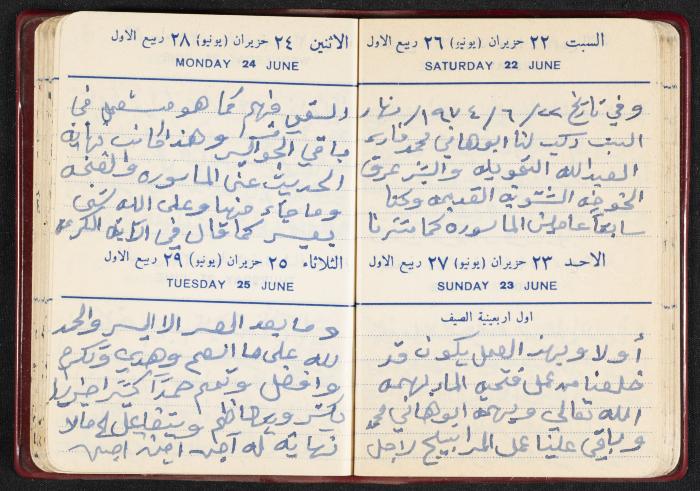 السبت ٢٢ حزيران (يونيو) ٢٦ ربيع الاول
SATURDAY 22 JUNE
وفي تاريخ ٢٢/٦/١٩٧٤/ نهار
السبت ركب لنا ابوهاني محمد فارس
العبدالله التحويله والينز عرق
الخوخه الشتويه القديمه وكنا
سابقاً عاملين الماسوره كما ذكرنا
الاحد ٢٣ حزيران (يونيو) ٢٧ ربيع الاول
SUNDAY 23 JUNE
اول اربعينية الصيف
أولا وبهذ العمل يكون قد
خلصنا من عمل فتحة الماء بهمة
الله تعالى وبهمة ابوهاني محمد
وباقي علينا عمل المرابيح راجل
الاثنين ٢٤ حزيران (يونيو) ٢٨ ربيع الاول
MONDAY 24 JUNE
السقي فيهم كما هو مستعمل في
باقي الحواكير وهنا كانت نهاية
الحديث عن الماسوره والفتحه
وما جاء منها وعلى الله كل شي
يعسر كما قال في الآية الكريمه
الثلاثاء ٢٥ حزيران (يونيو) ٢٩ ربيع الاول
TUESDAY 25 JUNE
وما بعد العسر الا اليسر والحمد
لله على ما انعم وهدى وتكرم
وافضل ونعم حمداً كثيراً
نهاية له آمين آمين آمين